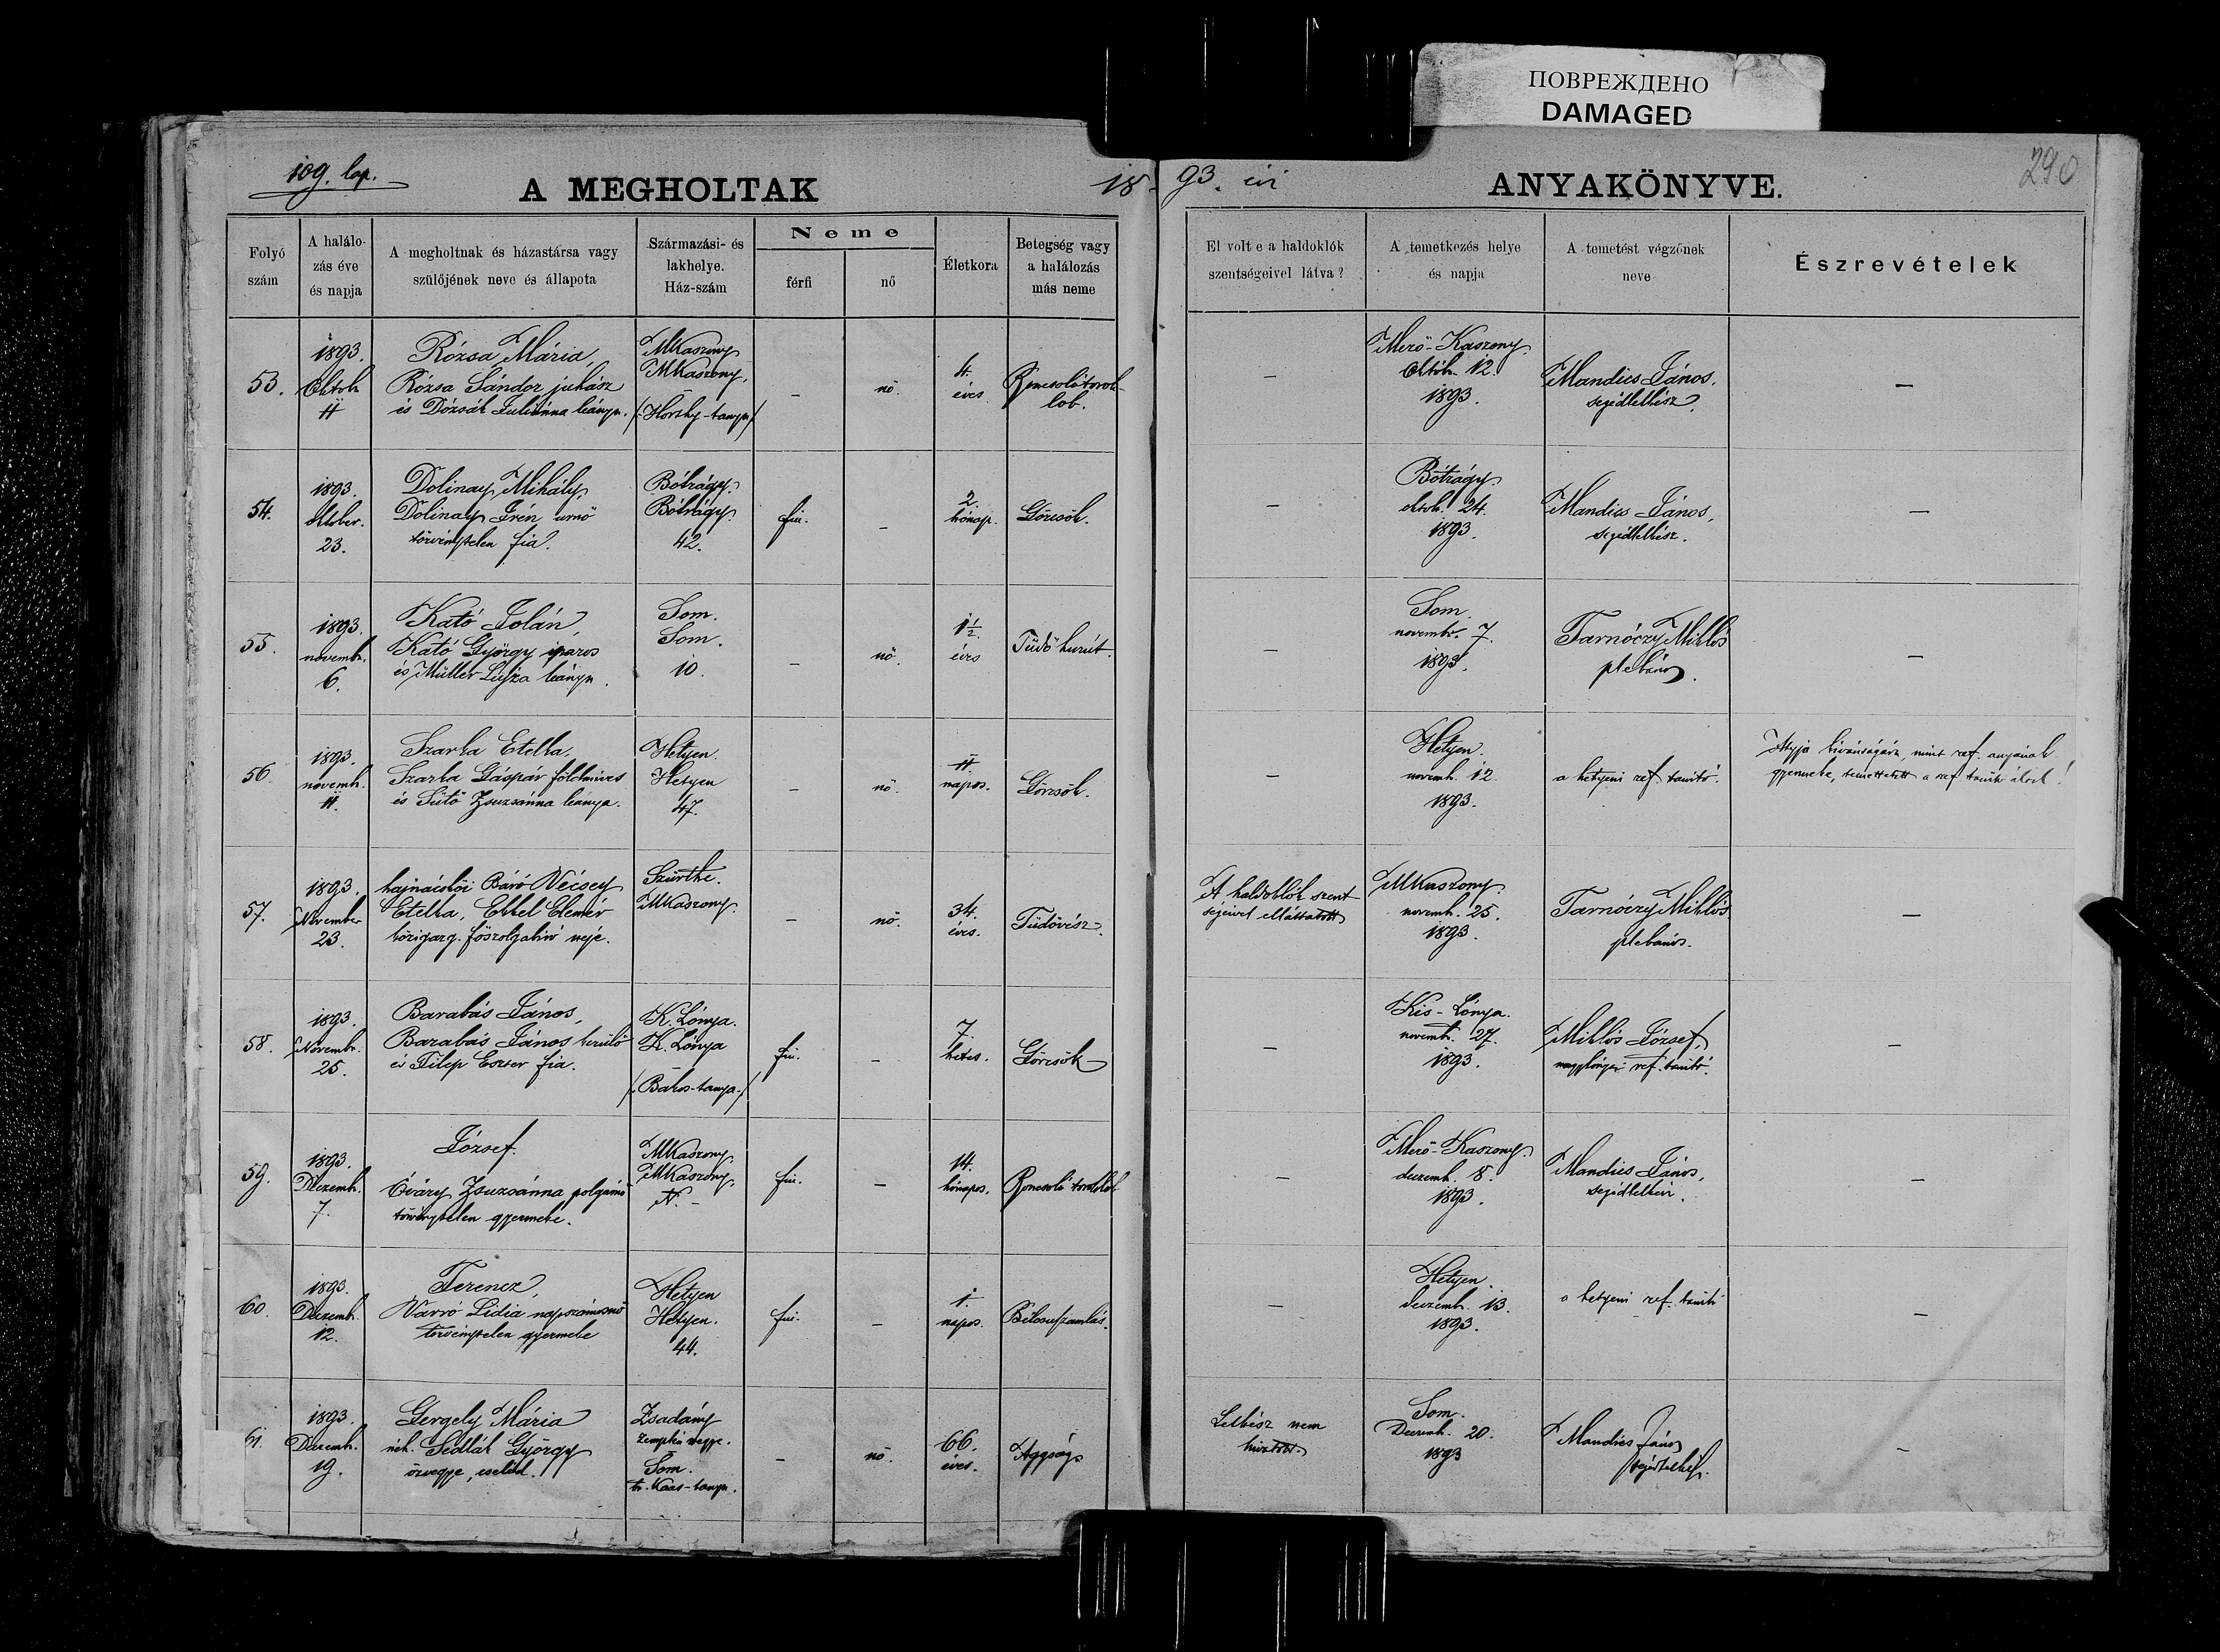 ПОВРЕЖДЕНО
DAMAGED
109. lap.
A MEGHOLTAK
18
93. évi
ANYAKÖNYVE.
290
Folyó szám
A halálo-zás éve és napja
A megholtnak és házastársa vagy szülőjének neve és állapota
Származási- és lakhelye. Ház-szám
Neme
férfi
nő
Életkora
Betegség vagy a halálozás más neme
El volt e a haldoklók szentségeivel látva?
A temetkezés helye és napja
A temetést végzőnek neve
Észrevételek
53.
1893.
Oktob.
11
Rózsa Mária,
Rózsa Sándor juhász
és Dózsák Juliánna leánya.
MKaszony
MKaszony,
/:Horsky-tanya/
-
nő.
4.
éves.
Roncsoló torok-
lob.
-
Mező-Kaszony.
Október 12.
1893.
Mandics János,
segédlelkész.
-
54.
1893.
október.
23.
Dolinay Mihály
Dolinay Irén urnő
törvénytelen fia.
Bótrágy.
Bótrágy.
42.
fiú.
-
2.
hónap.
Görcsök.
-
Bótrágy
oktob. 24.
1893.
Mandics János,
segédlelkész.
-
55.
1893.
novemb.
6.
Kató Jolán,
Kató György iparos
és Müller Lujza leánya.
Som.
Som.
10.
-
nő.
1½.
éves
Tüdőhurút.
-
Som.
novemb. 7.
1893.
Tarnóczy Miklós
plebános.
-
56.
1893.
novemb.
11.
Szarka Etelka,
Szarka Gáspár földmíves
és Sütő Zsuzsánna leánya.
Hetyen.
Hetyen
47.
-
nő.
11
napos.
Görcsök.
-
Hetyen.
novemb. 12.
1893.
a hetyeni ref. tanító.
Atyja kivánságára, mint ref. anyának
gyermeke, temettetett a ref. tanító által!
57.
1893.
November
23.
hajnácskői Báró Vécsey
Etelka, Ekkel Elemér
közigazg. főszolgabiró neje.
Szürthe.
MKaszony.
-
nő.
34.
éves.
Tüdővész.
A haldoklók szent
ségeivel elláttatott
MKaszony.
novemb. 25.
1893.
Tarnóczy Miklós
plebános.
-
58.
1893.
Novemb.
25.
Barabás János,
Barabás János kerülő
és Filep Eszter fia.
K. Lónya.
K. Lónya
/:Bakos-tanya:/
fiú.
-
7.
hetes.
Görcsök
-
Kis-Lónya.
novemb. 27.
1893.
Miklós József,
nagylónyai ref. tanító.
-
59.
1893.
Dezemb.
7.
József.
Óváry Zsuzsánna polgárnő
törvénytelen gyermeke.
MKaszony.
MKaszony.
N. -
fiú.
-
14.
hónapos.
Roncsoló toroklob
-
Mező-Kaszony.
decemb. 8.
1893.
Mandics János,
segédlelkész.
-
60.
1893.
Dezemb.
12.
Ferencz,
Varró Lidia napszámosnő
törvénytelen gyermeke
Hetyen
Hetyen.
44.
fiú.
-
1.
napos.
-
Hetyen.
decemb. 13.
1893.
a hetyeni ref. tanító
-
61.
1893.
Dezemb.
19.
Gergely Mária
néh. Sedlák György
özvegye, cseléd.
Zsadány
zemplén megye.
Som.
br. Kaas-tanya.
-
nő.
66.
éves.
Aggság
Lelkész nem
hivatott.
Som.
Decemb. 20.
1893
Mandics János
segédlelkész.
-